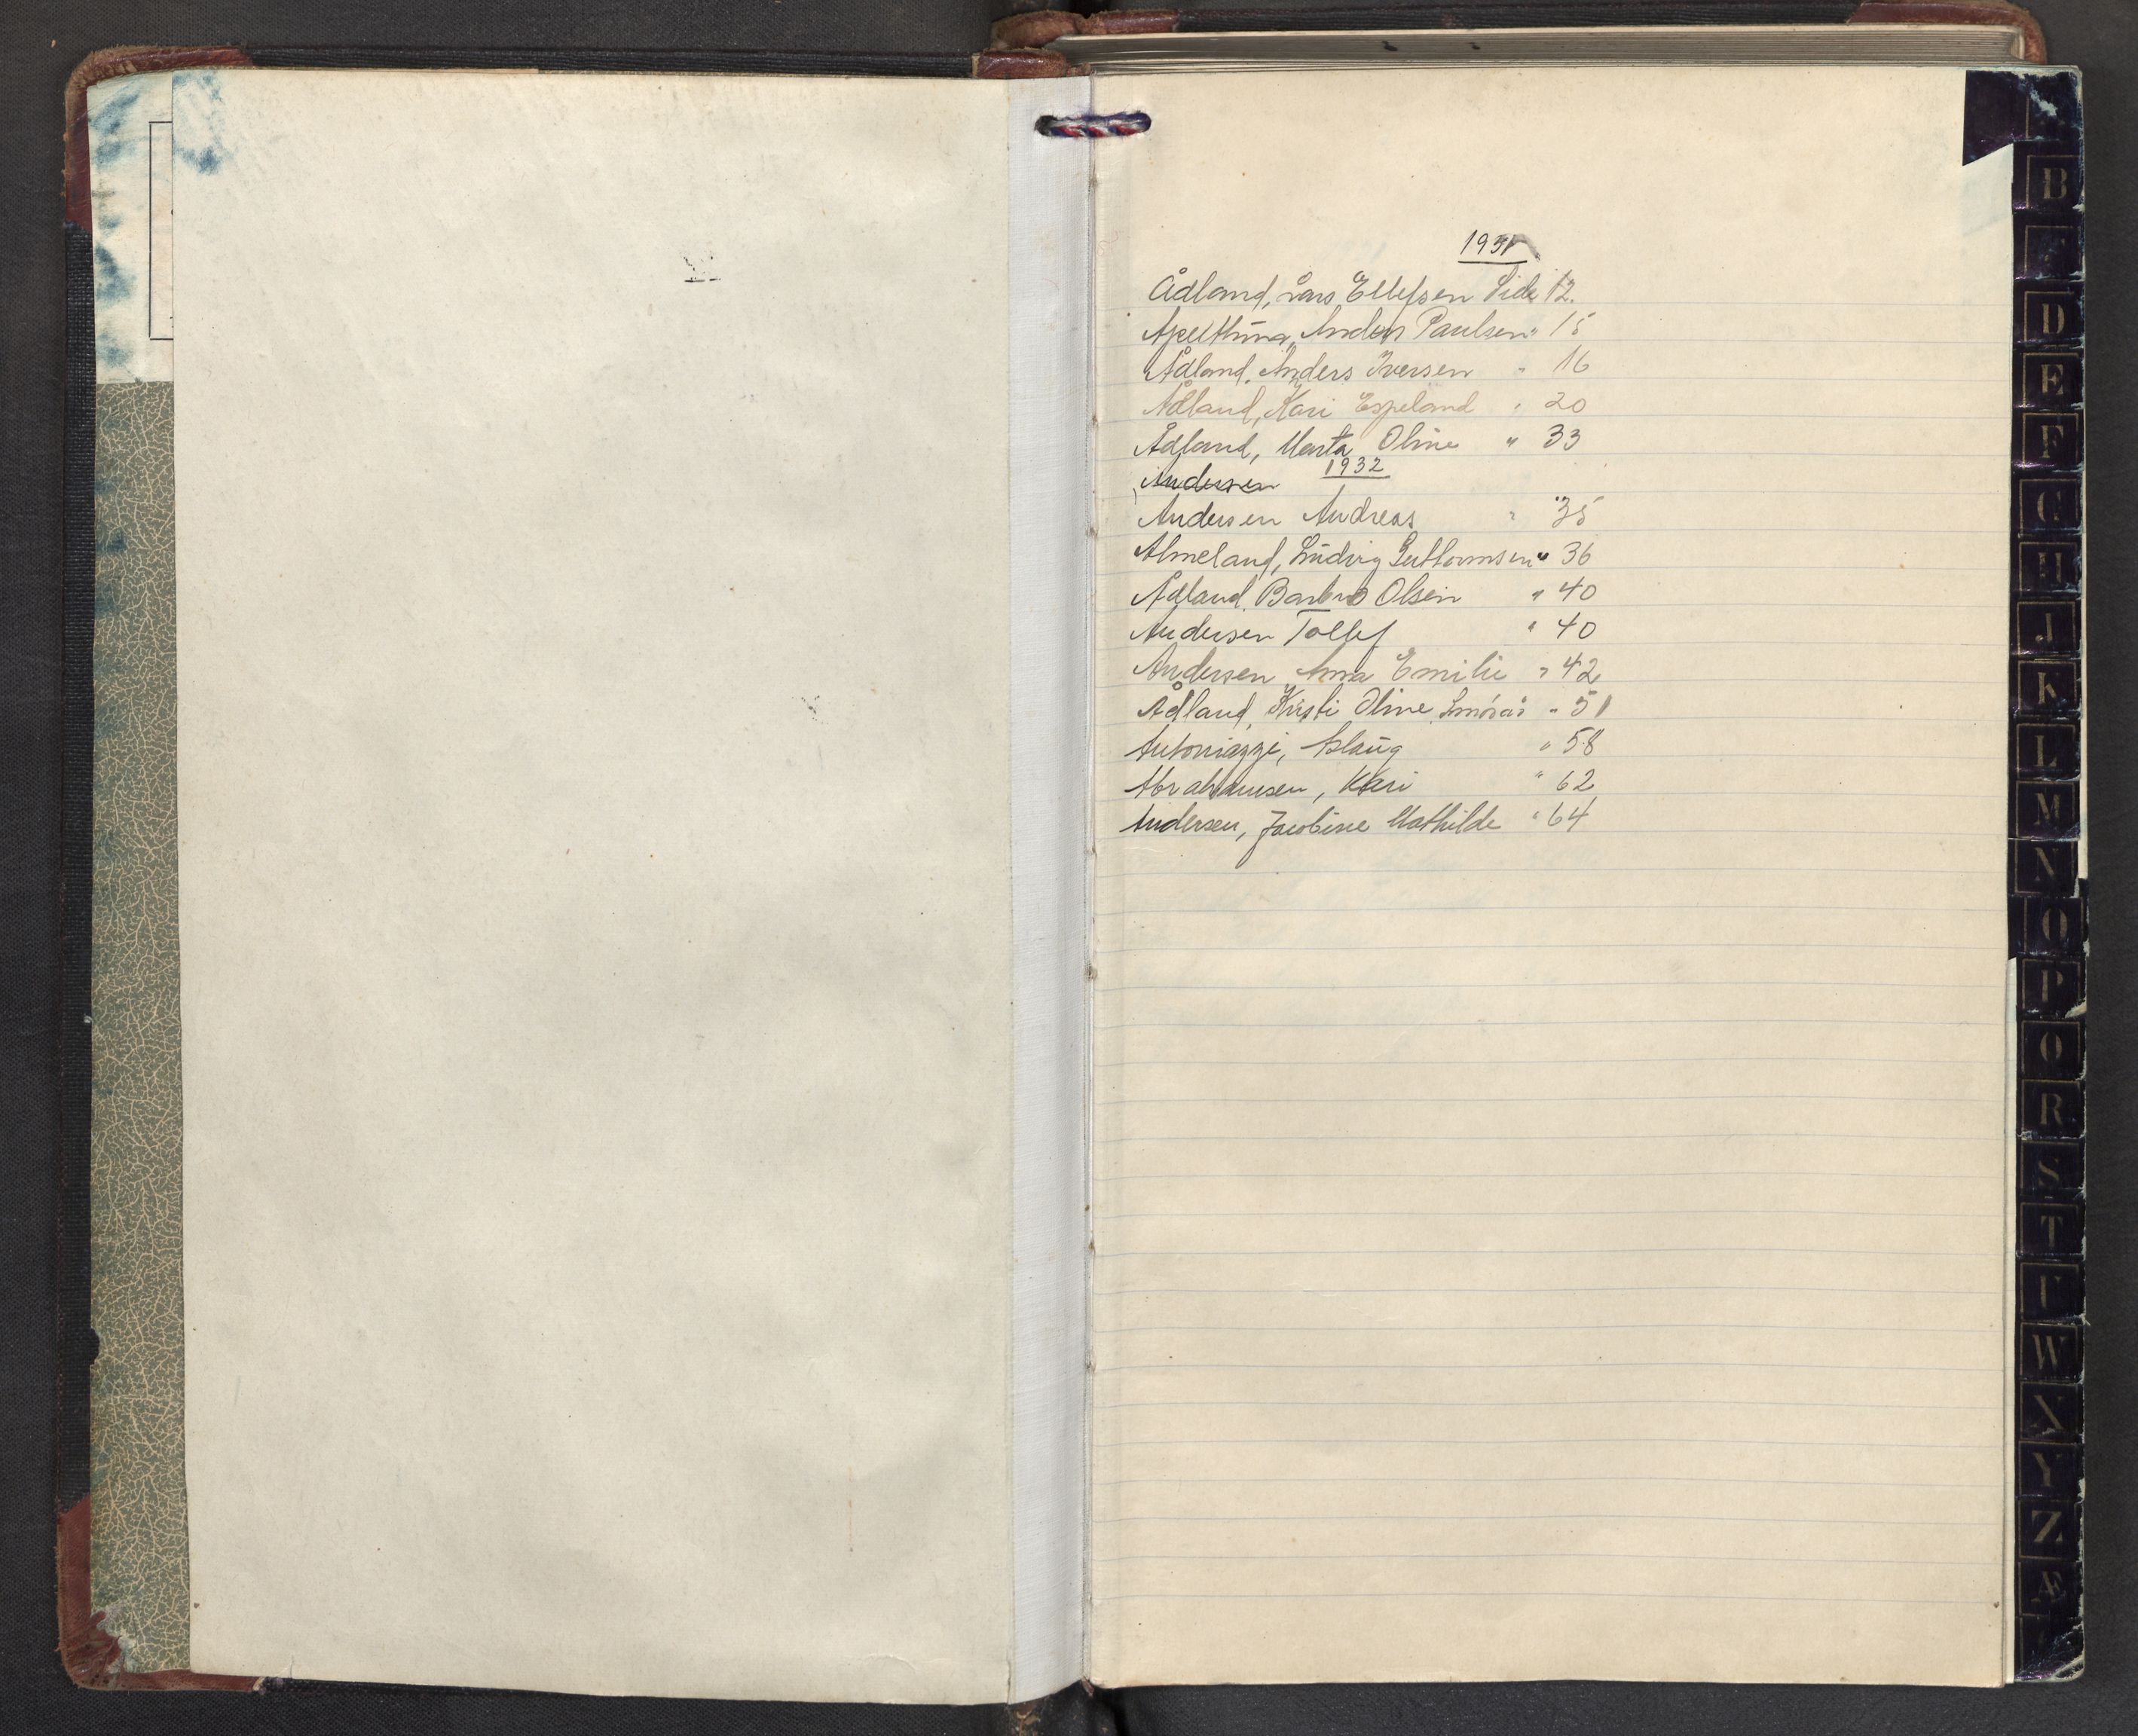 1931
Ådland, Lars Ellefsen Side 12.
Apelthun, Anders Paulsen " 15
Ådland, Anders Iversen " 16
Ådland, Kari Espeland " 20
Ådland, Marta Oline " 33
Andersen 1932
Andersen Andreas " 35
Almeland, Ludvig Guthormsen " 36
Ådland, Barbro Olsen " 40
Andersen Tollef " 40
Andersen, Anna Emilie " 42
Ådland, Kristi Oline Smörås " 51
Antoniazzi, Aslaug " 58
Abrahamsen, Kari " 62
Andersen, Jacobine Mathilde " 64
B
D
E
F
G
H
J
K
L
M
N
O
P
Ø
R
S
T
U
W
X
Y
Z
Æ